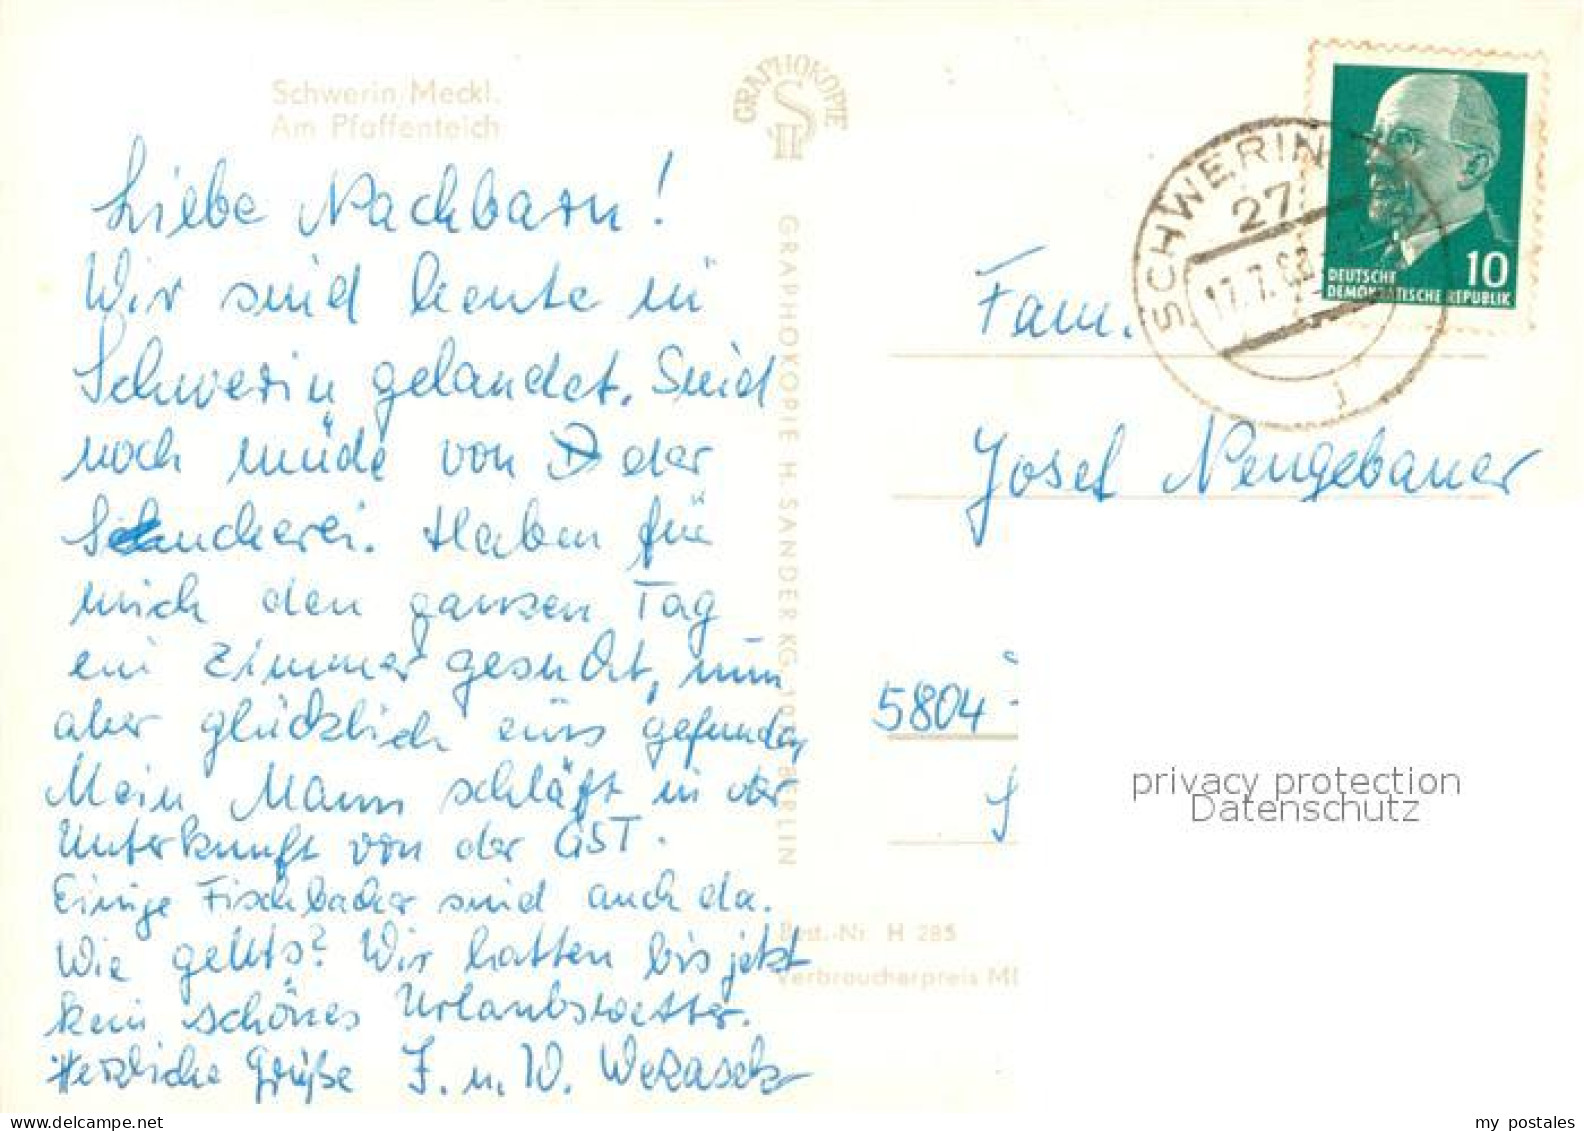 Schwerin/Meckl.
Am Pfaffenteich
Liebe Nachbarn!
Wir sind heute in
Schwerin gelandet. Sind
noch müde von der
Sucherei. Haben für
mich den ganzen Tag
ein Zimmer gesucht, nun
aber glücklich eins gefunden
Mein Mann schläft in der
Unterkunft von der GST.
Einige Fischbacher sind auch da.
Wie gehts? Wir hatten bis jetzt
kein schönes Urlaubswetter.
Herzliche Grüße I. u. W.
GRAPHOKOPIE
GRAPHOKOPIE H. SANDER KG, BERLIN
Best.-Nr. H 285
Verbraucherpreis
SCHWERIN
27
17.7.
DEUTSCHE
DEMOKRATISCHE REPUBLIK
10
Fam.
Josef Neugebauer
5804
privacy protection
Datenschutz
my postales